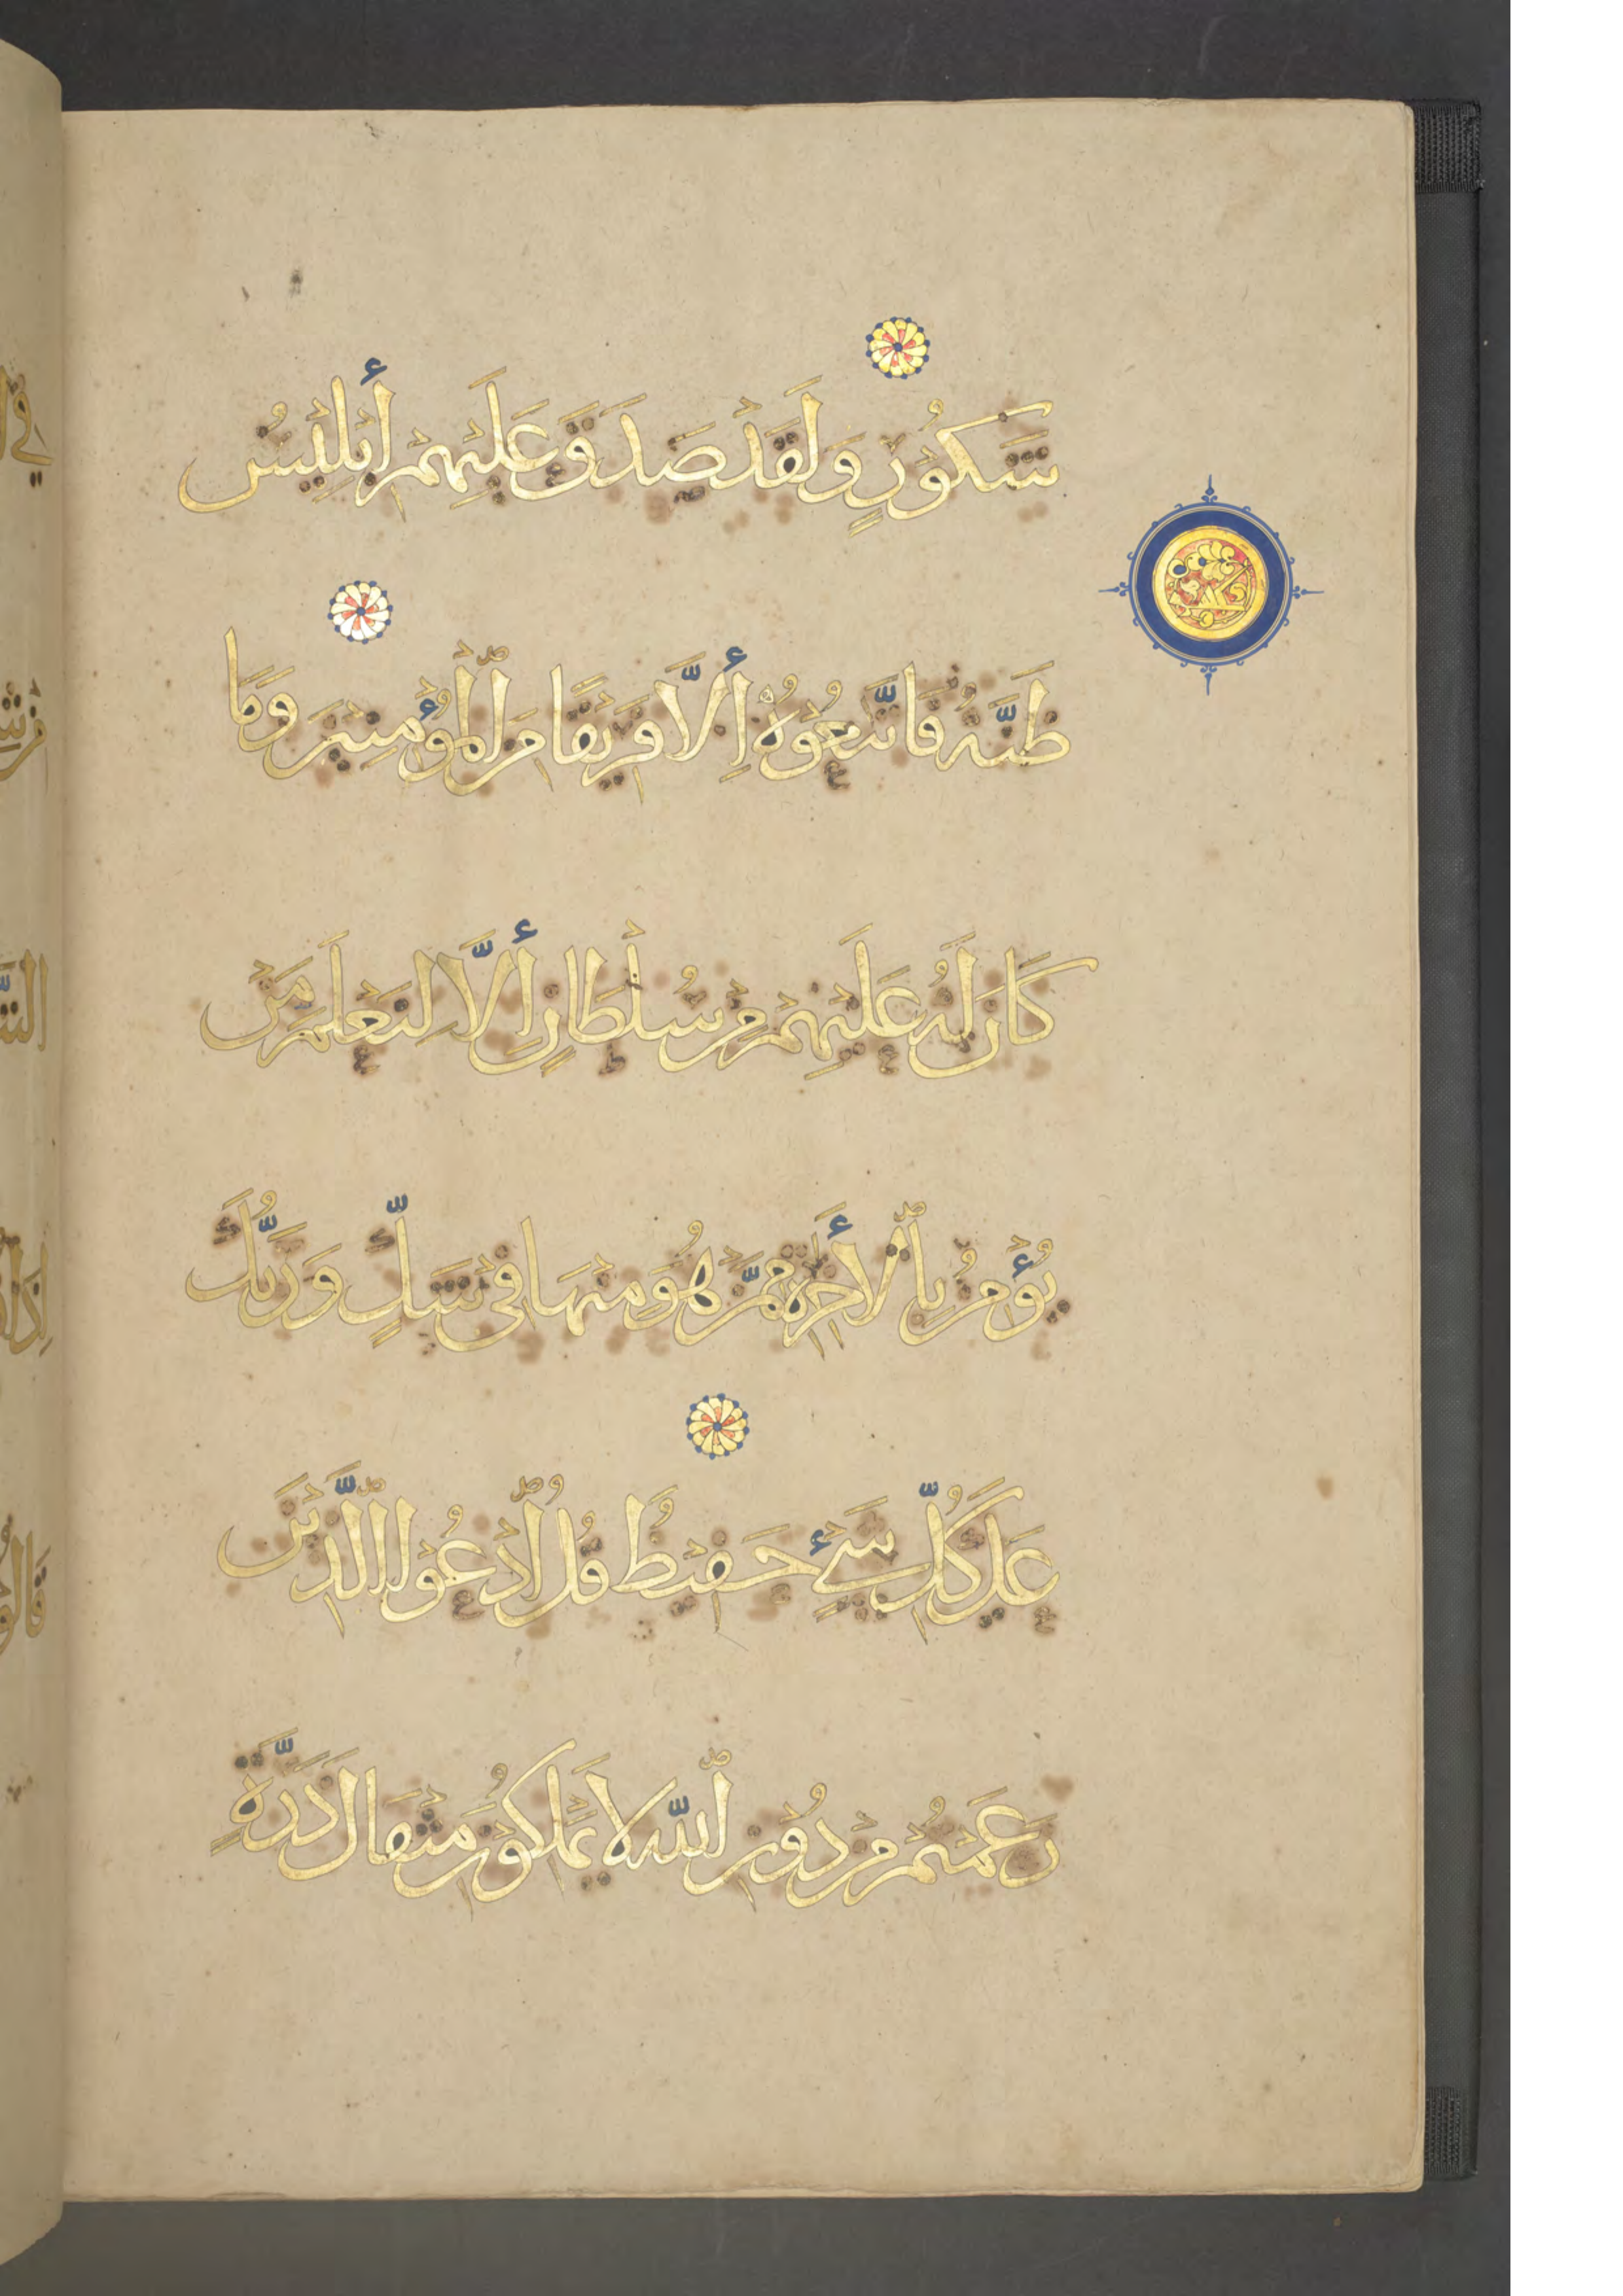 شَكُورٍ وَلَقَدْ صَدَقَ عَلَيْهِمْ أِبْلِيْسُ
ظَنَّهُ فَاتَّبَعُوْهُ أِلَّا فَرِيْقًا مِنَ الْمُؤْمِنِيْنَ وَمَا
كَانَ لَهُ عَلَيْهِمْ مِنْ سُلْطَانٍ أِلَّا لِنَعْلَمَ مَنْ
يُؤْمِنُ بِالْأَخِرَةِ مِمَّنْ هُوَ مِنْهَا فِيْ شَكٍّ وَرَبُّكَ
عَلَى كُلِّ شَيْءٍ حَفِيْظٌ قُلِ ادْعُوا الَّذِيْنَ
زَعَمْتُمْ مِنْ دُوْنِ اللّٰهِ لَا يَمْلِكُوْنَ مِثْقَالَ ذَرَّةٍ